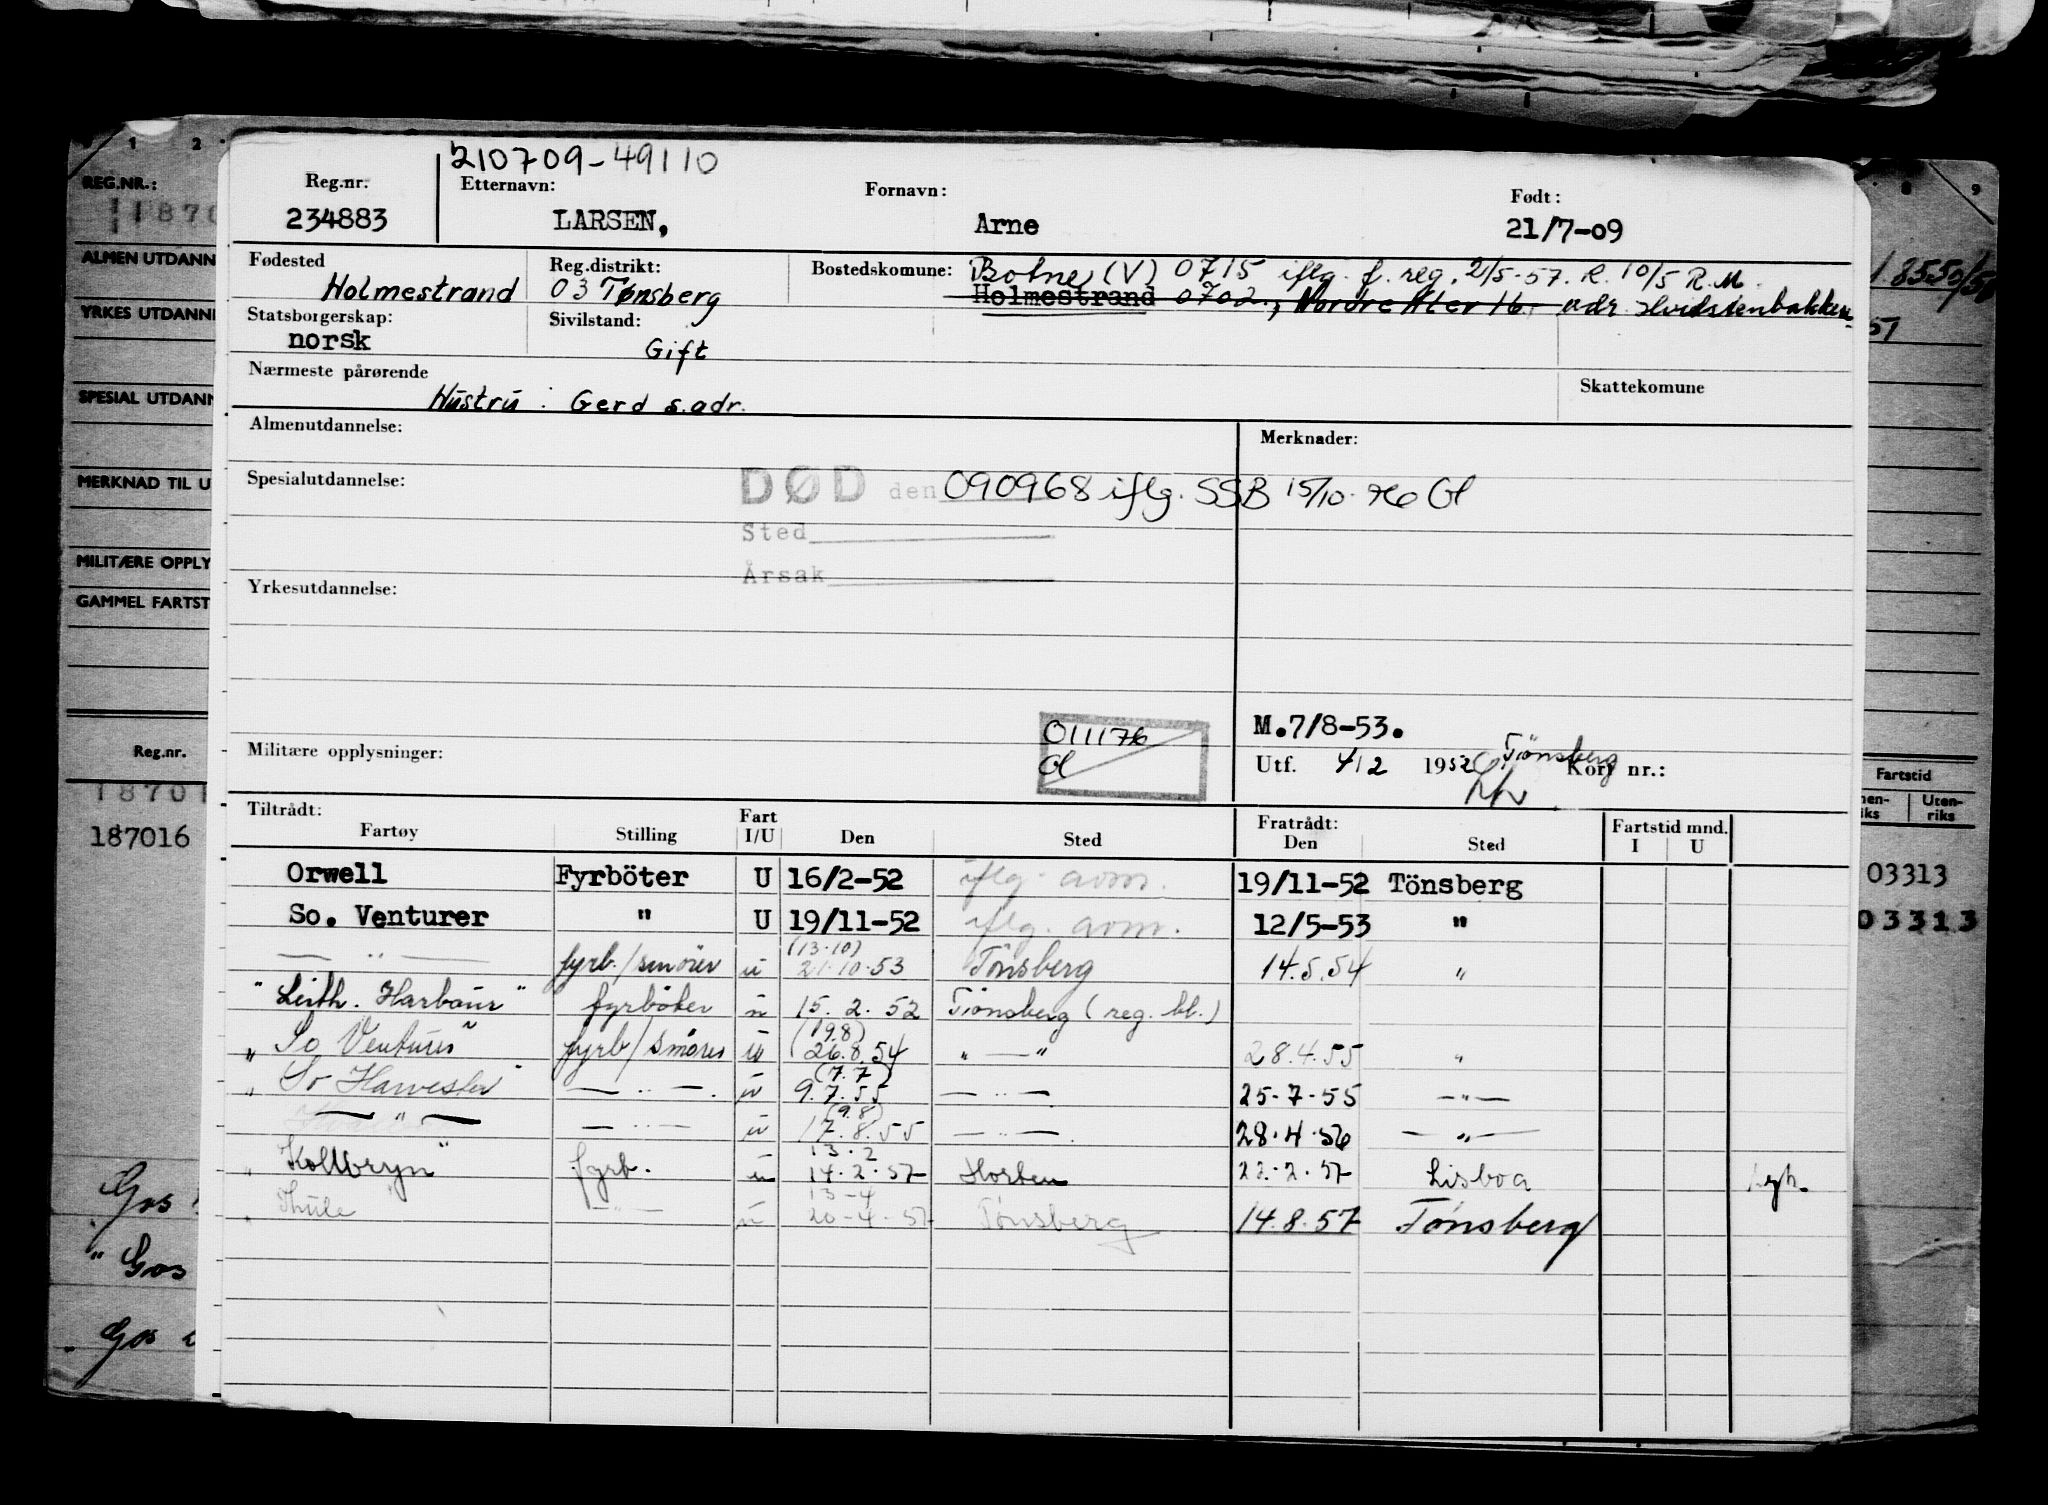 1 2 8 9
210709-49110
REG.NR.:
Reg.nr. Etternavn: Fornavn: Født:
234883 LARSEN, Arne 21/7-09
ALMEN UTDANN
Fødested Reg.distrikt: Bostedskomune: Botne (V) 0715 iflg. f. reg. 2/5-57. R. 10/5 R.M.
Holmestrand 03 Tønsberg Holmestrand 0702, Nordre adr. Hvidstenbakken
YRKES UTDANNI
Statsborgerskap: Sivilstand:
norsk Gift
Nærmeste pårørende Skattekomune
SPESIAL UTDANN
Hustru: Gerd s.adr.
Almenutdannelse: Merknader:
MERKNAD TIL U
Spesialutdannelse: DØD den 090968 iflg. SSB 15/10-76 Gl
Sted
MILITÆRE OPPLY
Årsak
GAMMEL FARTST
Yrkesutdannelse:
011176 M.7/8-53.
Reg.nr.
Militære opplysninger: Gl Utf. 4/2 1952 Tönsberg Kort nr.:
Fartstid
Uten-
riks
Tiltrådt: Fart Fratrådt: Fartstid mnd.
Fartøy Stilling I/U Den Sted Den Sted I U
187016 03313
Orwell Fyrböter U 16/2-52 iflg. avm. 19/11-52 Tönsberg
So. Venturer " U 19/11-52 iflg. avm. 12/5-53 "
03313
(13.10)
— " — fyrb./smörer u 21.10.53 Tönsberg 14.5.54 "
"Leith. Harbour" fyrböter u 15.2.52 Tönsberg (reg. bl.)
(19.8)
" So Venturer" fyrb/smörer u 26.8.54 " — " 28.4.55 "
(7.7)
" So Harvester" — " — u 9.7.55 — " — 25-7-55 — " —
(9.8)
— " — — " — u 17.8.55 — " — 28.4.56 — " —
13.2
" Kollbryn" fyrb. u 14.2.57 Horten 22.2.57 Lisboa
13-4
" Thule — " — u 20-4-57 Tönsberg 14.8.57 Tönsberg
Gos
" Gos
Gos